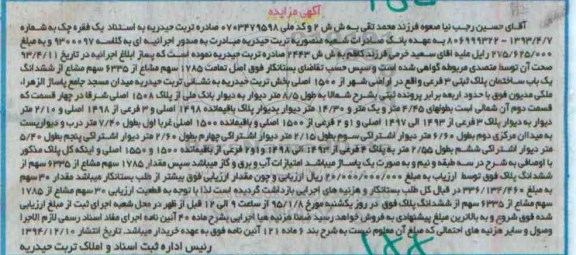 آگهی مزایده
آقای حسین رجب نیا صعوه فرزند محمد تقی به ش ش ۲ و کد ملی ۰۷۰۳۴۷۹۵۹۸ صادره تربت حیدریه به استناد یک فقره چک به شماره
۸۰۶۹۹۹۳۲۲ – ۱۳۹۳/۴/۷ به عهده بانک صادرات شعبه منصوریه تربت حیدریه مبادرت به صدور اجرائیه ای به کلاسه ۹۳۰۰۰۹۷ و به مبلغ
۲۷۵/۶۲۵/۰۰۰ ریال علیه آقای سعید خرمی فرزند کاظم به ش ش ۲۴۴۳ صادره تربت حیدریه نموده است که پس از ابلاغ اجرائیه در تاریخ ۹۳/۴/۱۱
صحت آن توسط متصدی مربوطه گواهی شده است و سپس حسب تقاضای بستانکار فوق اصل تمامت ۱۷۸۵ سهم مشاع از ۶۳۳۵ سهم مشاع از ششدانگ
یک باب ساختمان پلاک ثبتی ۳ فرعی واقع در اراضی شهر از ۱۵۰۰ اصلی بخش تربت حیدریه به نشانی تربت حیدریه میدان مسجد جامع پاساژ الزهرا،
ملکی مدیون فوق با حدود اربعه برابر پرونده ثبتی بشرح شمالا به طول ۸/۵ متر دیوار به دیوار بانک ملی از پلاک ۱۵۰۸ اصلی شرقا در چهار قسمت که
قسمت دوم آن شمالی است بطولهای ۲/۴۵ متر و یک متر و ۱۴/۳۰ متر دیوار بدیوار پلاک باقیمانده ۱۴۹۸ اصلی و ۳ فرعی از ۱۴۹۸ اصلی و ۲/۱۰ متر
دیوار به دیوار پلاک ۳ فرعی از ۱۴۹۳ الی ۱۴۹۷ اصلی و ۱ و ۲ فرعی از ۱۵۰۰ اصلی و باقیمانده ۱۵۰۰ اصلی غربا اول بطول ۷/۴۰ متر درب و دیواریست
به میدان مرکزی دوم بطول ۶/۶۰ متر دیوار اشتراکی سوم بطول ۲/۱۵ متر دیوار اشتراکی چهارم بطول ۲/۶۰ متر دیوار اشتراکی پنجم بطول ۵/۴۰
متر دیوار اشتراکی ششم بطول ۲/۵۵ متر به پلاک ۳ فرعی از ۱۴۹۳ الی ۱۴۹۸ و ۱ و ۲ فرعی از باقیمانده ۱۵۰۰ و ۱۵۵۰ اصلی و اینکه کل پلاک مذکور
با اوصافی به شرح در سه طبقه و نیم و به صورت یک پاساژ میباشد. امتیازات آب و برق و گاز میباشد سپس مقدار ۱۷۸۵ سهم مشاع از ۶۳۳۵ سهم از
ششدانگ پلاک فوق توسط ارزیاب به مبلغ ۲۰/۰۰۰/۰۰۰/۰۰۰ ریال ارزیابی و چون مقدار ارزیابی فوق بیشتر از طلب بستانکار میباشد مقدار ۳۰ سهم
به مبلغ ۳۳۶/۱۳۴/۴۶۰ در قبال کل طلب بستانکار و هزینه های اجرایی بازداشت گردیده است لذا با توجه به قطعیت ارزیابی ۳۰ سهم مشاع از ۱۷۸۵
سهم مشاع از ۶۳۳۵ سهم از ششدانگ پلاک فوق در روز یکشنبه مورخ ۹۵/۱/۸ از ساعت ۹ الی ۱۲ قبل از ظهر در محل شعبه اجرای ثبت از مبلغ ارزیابی
شده فوق شروع و به بالاترین مبلغ پیشنهادی به فروش خواهد رسید ضمنا هزینه هیا اجرایی بشرح ماده ۴۰ آئین نامه اجرای مفاد اسناد رسمی لازم الاجرا
وصول و سایر هزینه های احتمالی که مبلغ آن معلوم نیست به شرح بند ۶ ماده ۱۲۱ آئین نامه فوق به عهده خریدار میباشد. تاریخ انتشار ۱۳۹۴/۱۲/۱۰
رئیس اداره ثبت اسناد و املاک تربت حیدریه